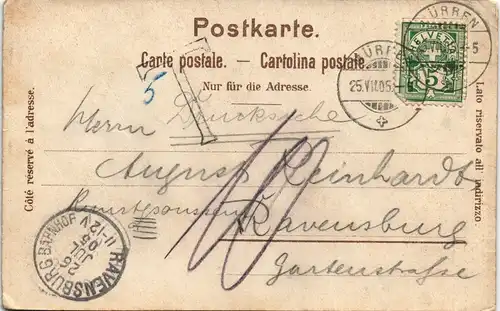 Postkarte.
Carte postale. — Cartolina postale.
Nur für die Adresse.
Côté réservé à l'adresse.
Lato riservato all' indirizzo
MÜRREN
25.VII.05.
HELVETIA
5
T
5
Drucksache
Herrn
August Reinhardt,
10
Ravensburg
Gartenstrasse
RAVENSBURG BAHNHOF
26 JUL 05
11-12 V